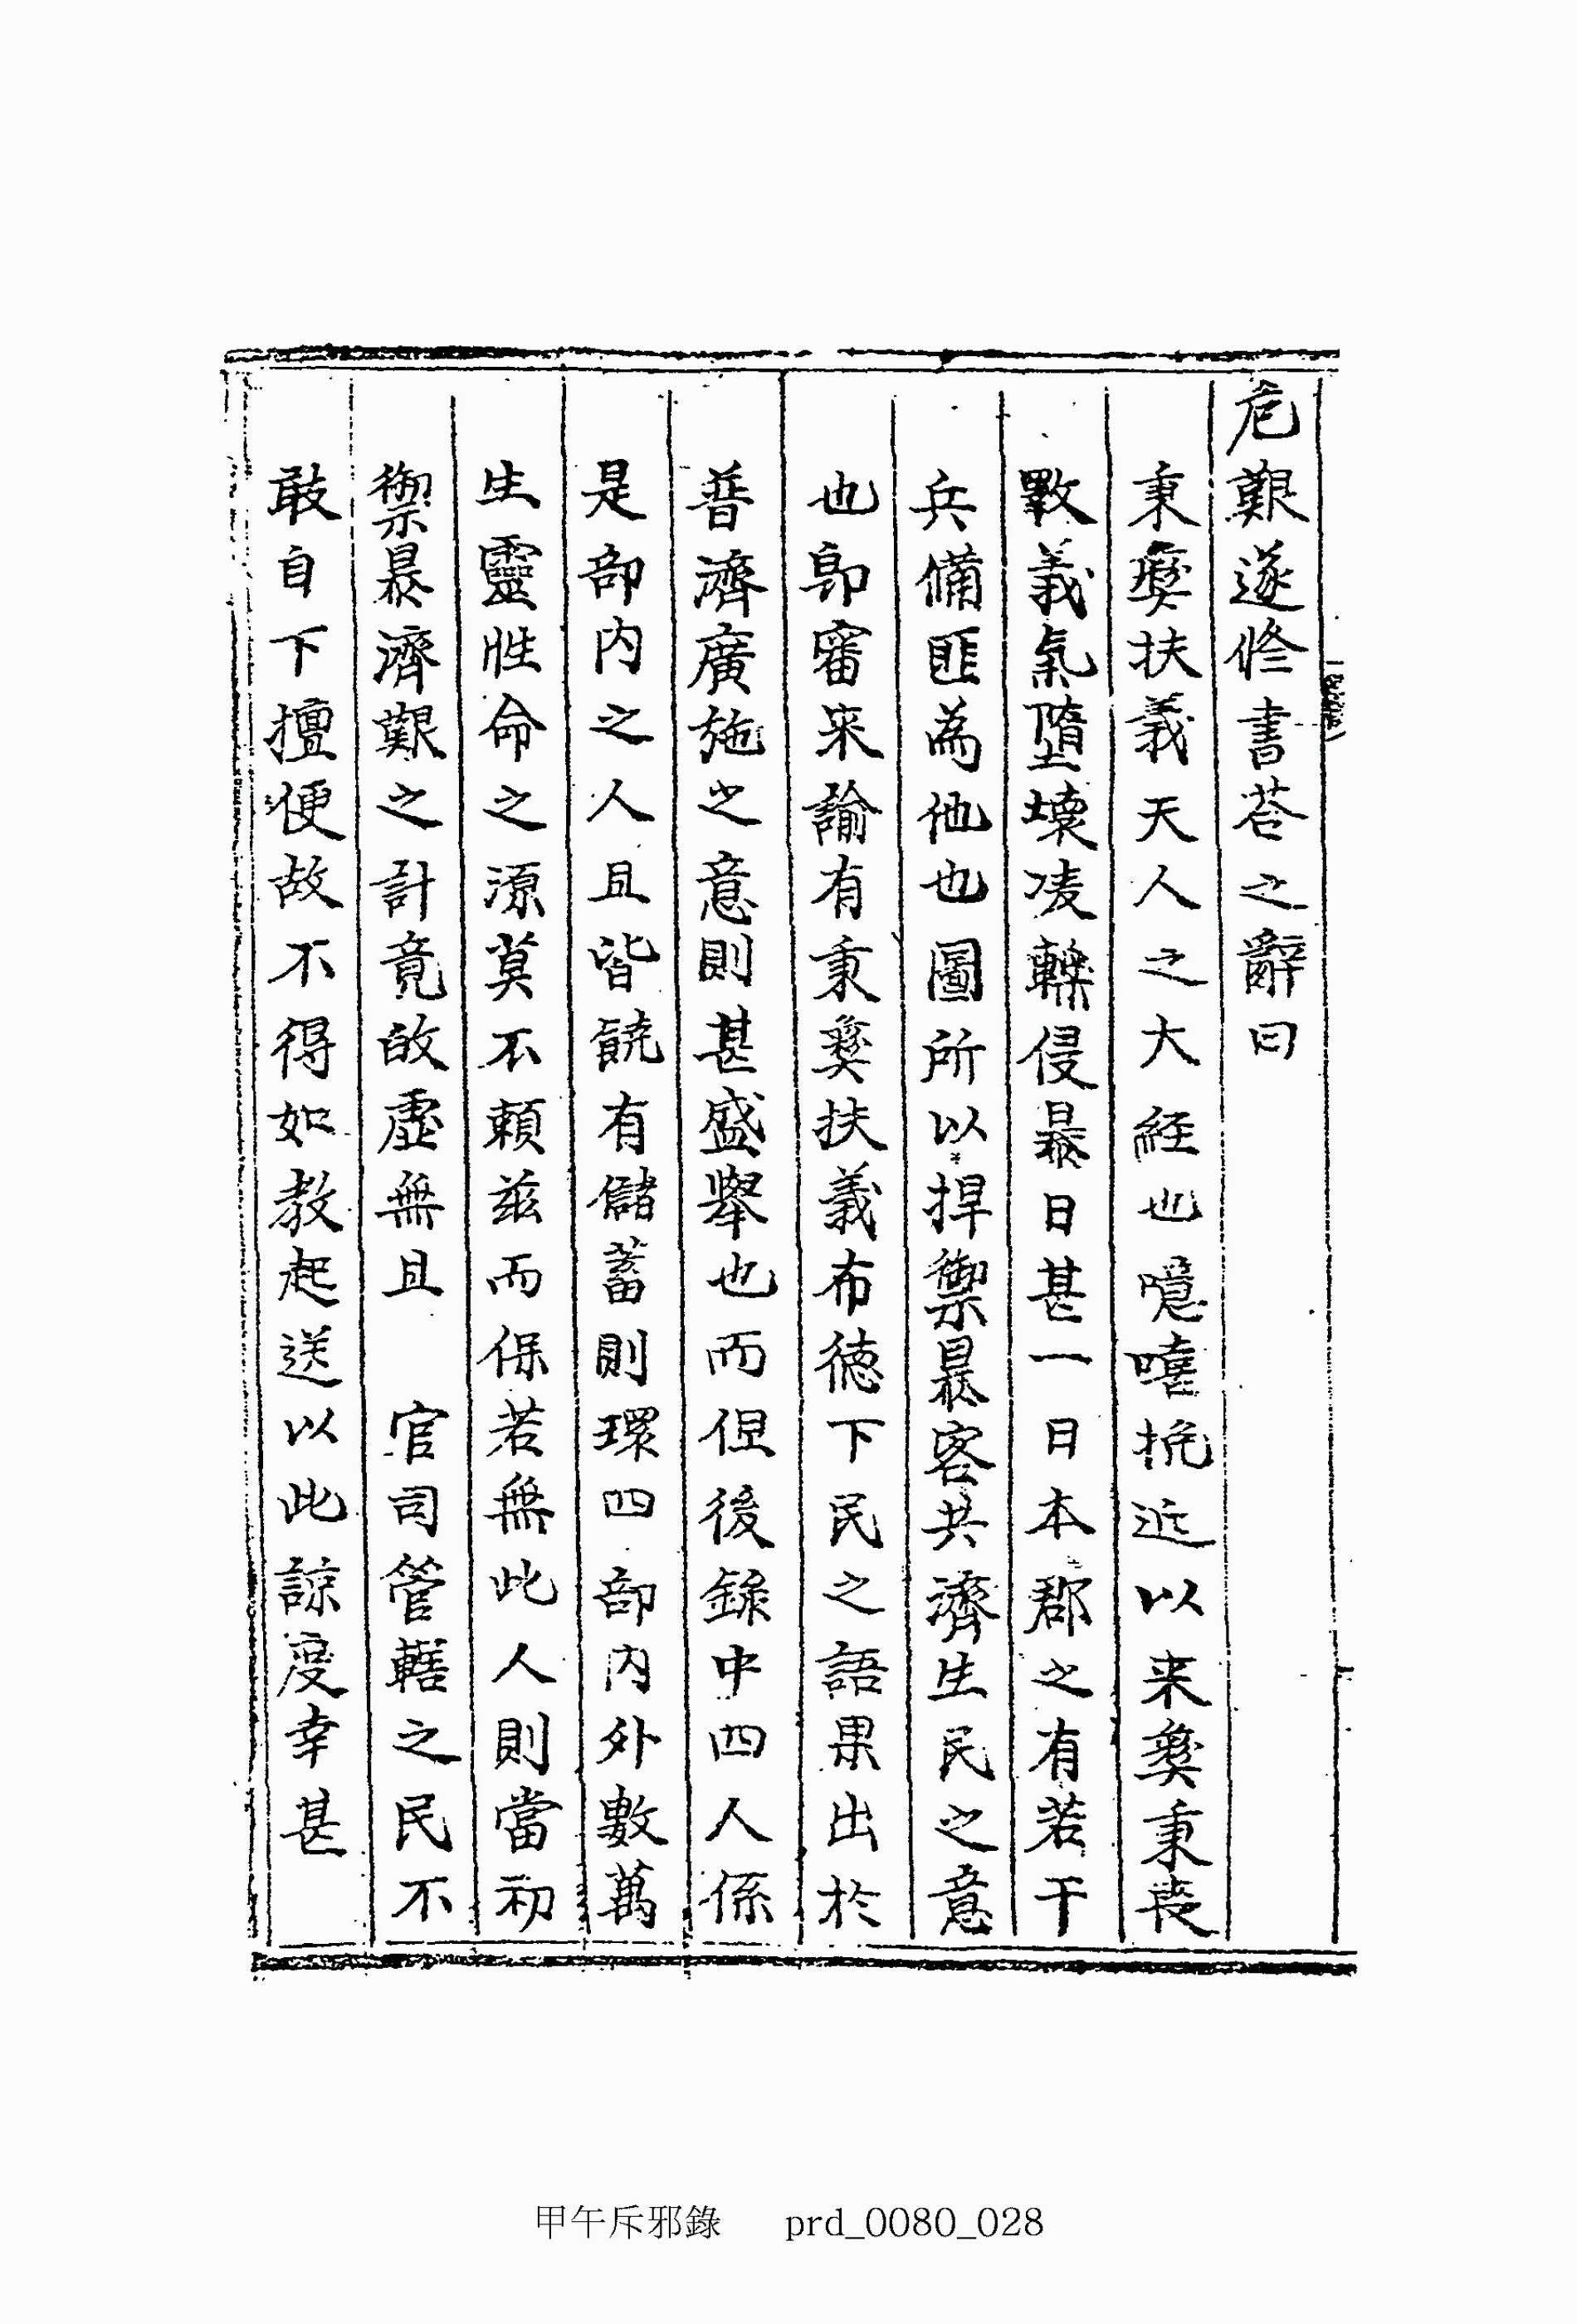 危艱遂修書荅之辭曰
秉彝扶義天人之大經也噫嘻挽近以来彝秉喪
斁義氣墮壞凌轢侵暴日甚一日本郡之有若干
兵備匪為他也圖所以捍禦暴客共濟生民之意
也即審来諭有秉彝扶義布德下民之語果出於
普濟廣施之意則甚盛舉也而但後錄中四人係
是部內之人且皆饒有儲蓄則環四部內外數萬
生靈性命之源莫不賴茲而保若無此人則當初
禦暴濟艱之計竟敀虛無且 官司管轄之民不
敢自下擅便故不得如教起送以此諒度幸甚
甲午斥邪錄 prd_0080_028